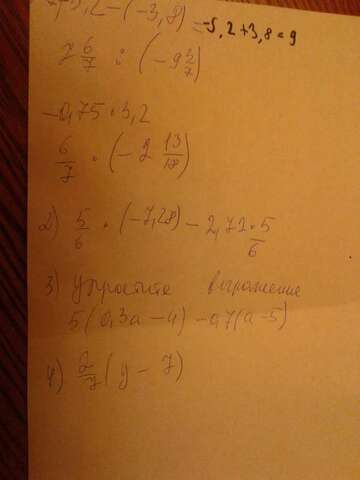 -5,2-(-3,8) =-5,2+3,8=9
2 6/7 : (-9 3/7)
-0,75·3,2
6/7 · (-2 13/18)
2) 5/6 · (-7,28) - 2,72·5/6
3) Упростите выражение
5(0,3a-4)-0,7(a-5)
4) 2/7(y-7)